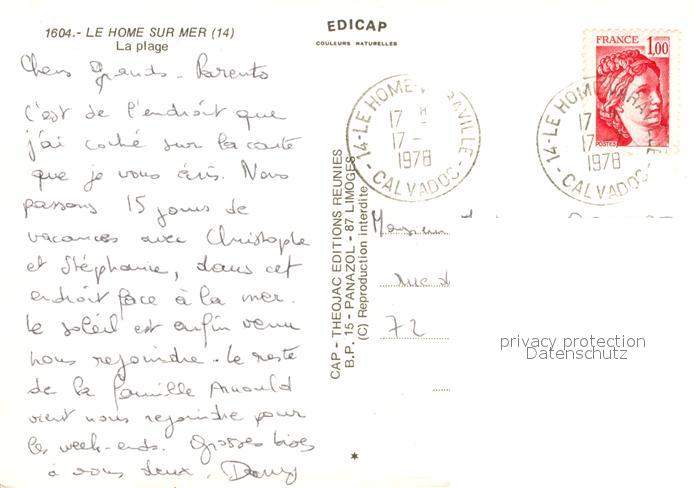 1604.- LE HOME SUR MER (14)
La plage
EDICAP
COULEURS NATURELLES
Chers grands-Parents
c'est de l'endroit que
j'ai coché sur la carte
que je vous écris. Nous
passons 15 jours de
vacances avec Christophe
et Stéphanie, dans cet
endroit face à la mer.
Le soleil est enfin venu
nous rejoindre. Le reste
de la famille Arnould
vient nous rejoindre pour
les week-ends. Grosses bises
à vous deux.
CAP - THEOJAC EDITIONS REUNIES
B.P. 15 - PANAZOL - 87 LIMOGES
(C) Reproduction interdite
14-LE HOME-VARAVILLE
17
17 -
1978
- CALVADOS -
FRANCE
1,00
POSTES
14-LE HOME-VARAVILLE
17
17
1978
- CALVADOS -
Monsieur
rue d
72
privacy protection
Datenschutz